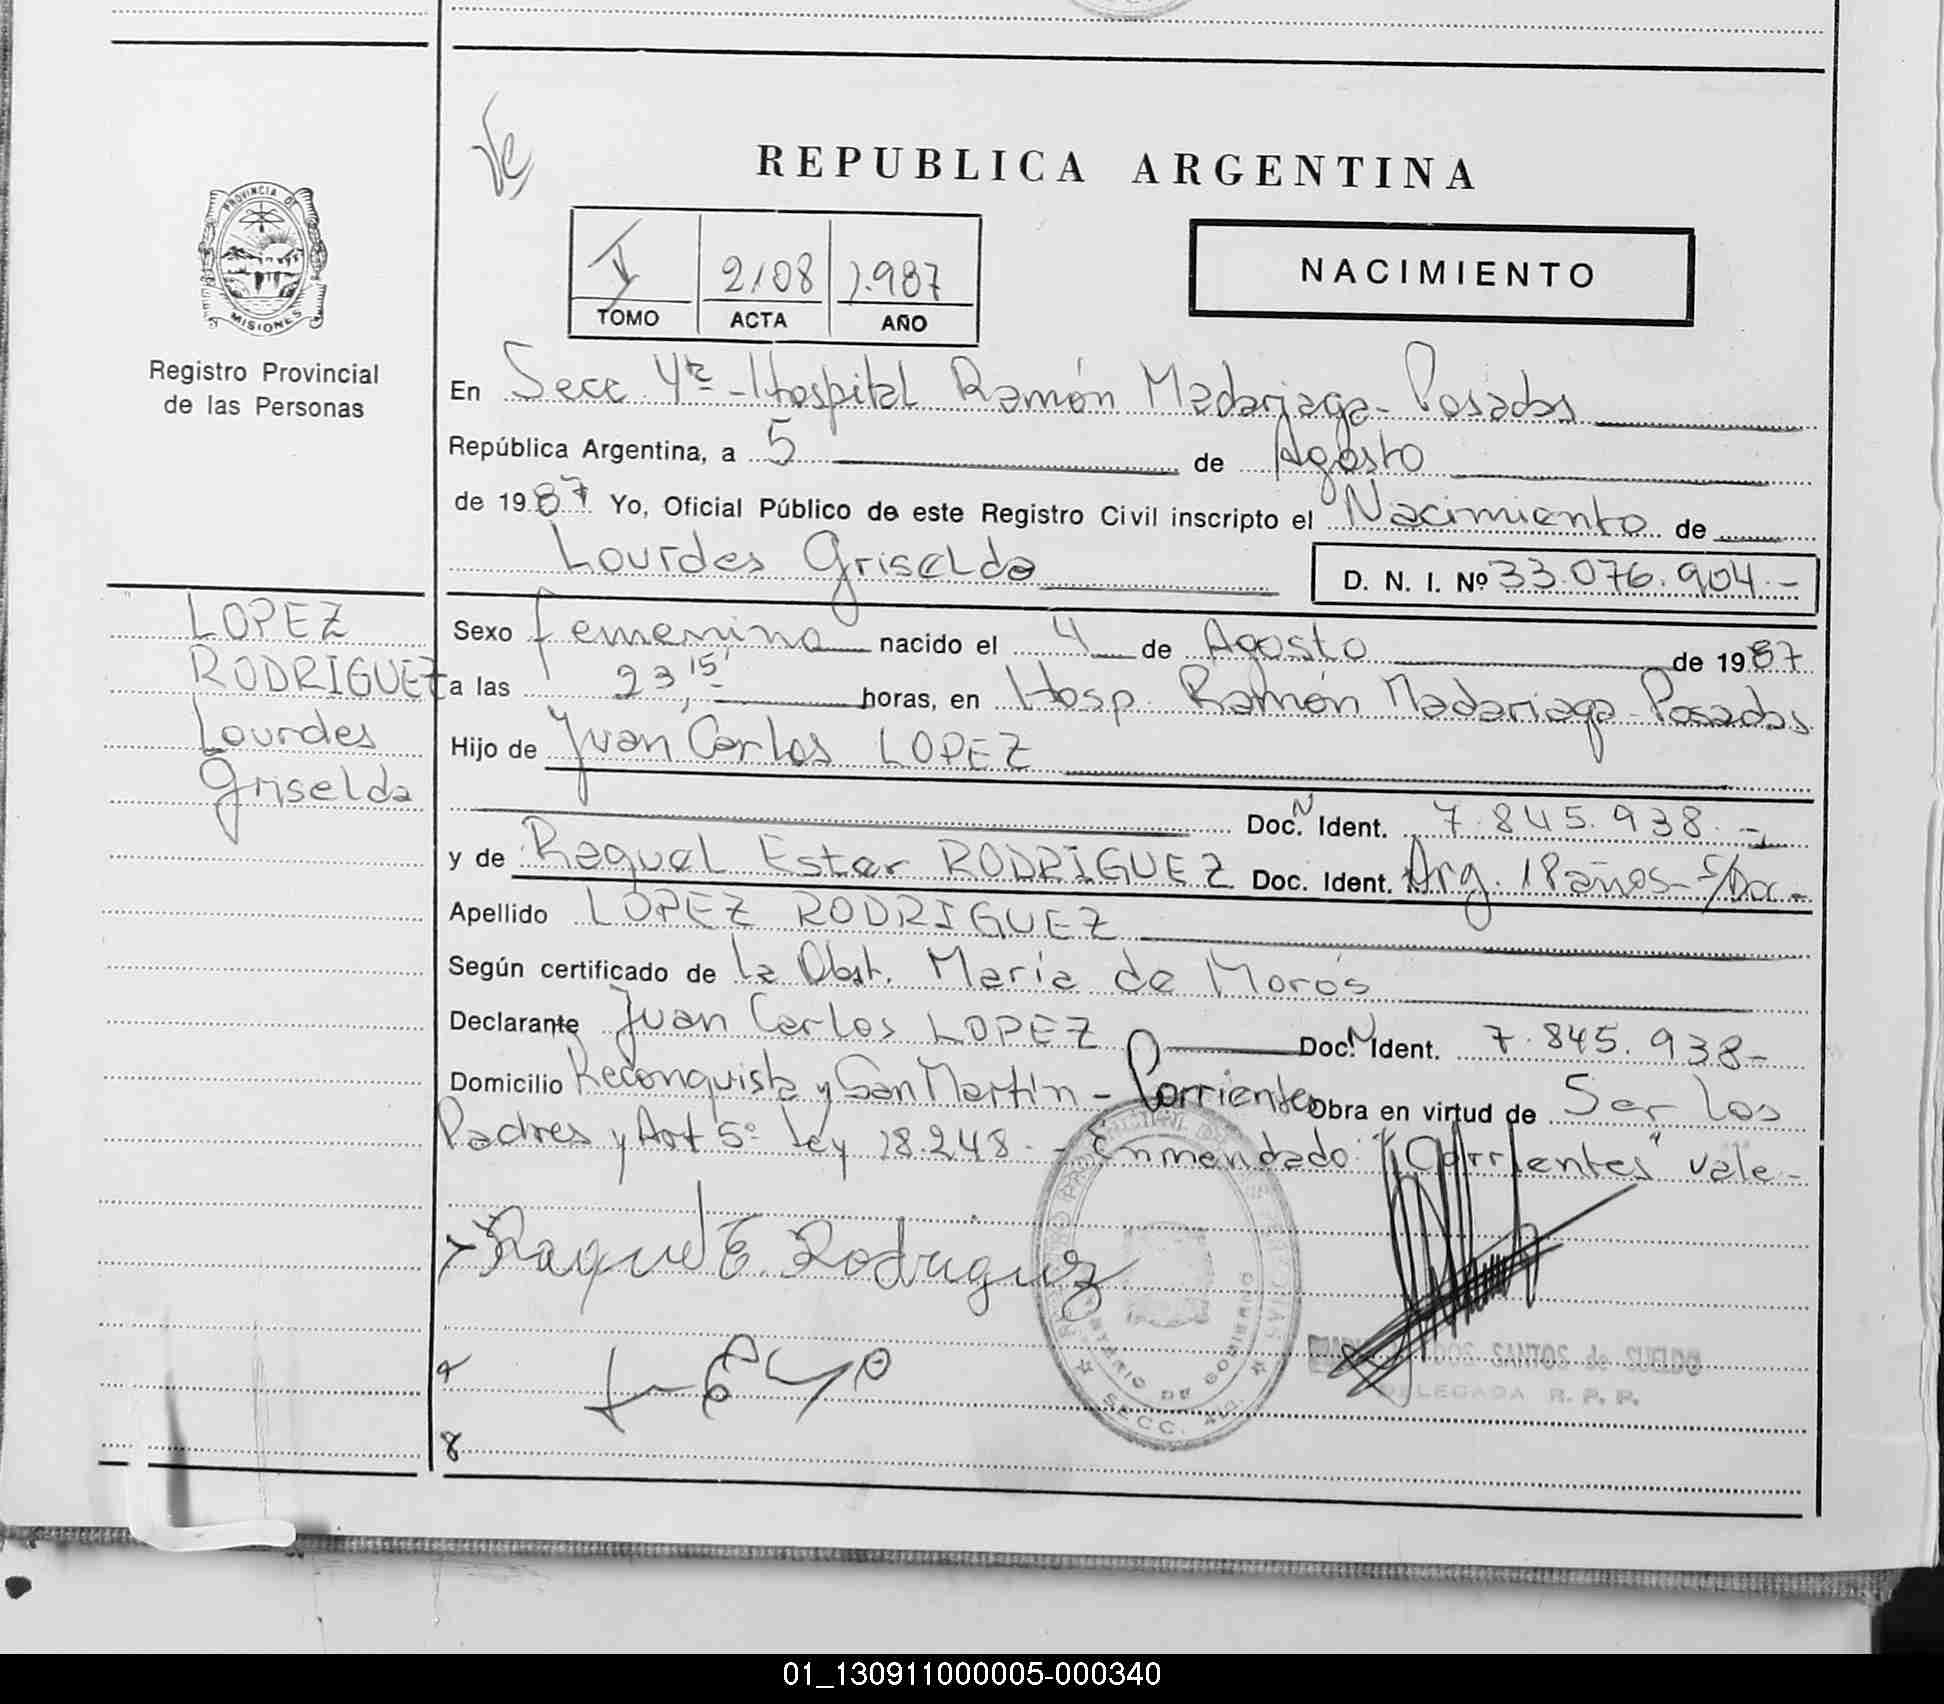 REPUBLICA ARGENTINA
PROVINCIA DE
MISIONES
Registro Provincial
de las Personas
TOMO
2108 ACTA
1.987 AÑO
NACIMIENTO
En Secc 4ta - Hospital Ramón Madariaga - Posadas
República Argentina, a 5 de Agosto
de 1987 Yo, Oficial Público de este Registro Civil inscripto el Nacimiento de
Lourdes Griselda D. N. I. Nº 33.076.904.-
LOPEZ
RODRIGUEZ
Lourdes
Griselda
Sexo femenino nacido el 4 de Agosto de 1987
a las 23,15' horas, en Hosp. Ramón Madariaga - Posadas
Hijo de Juan Carlos LOPEZ
Doc. N Ident. 7.845.938.-
y de Raquel Ester RODRIGUEZ Doc. Ident. Arg. 18 años - S/Doc.-
Apellido LOPEZ RODRIGUEZ
Según certificado de la Obst. María de Morós
Declarante Juan Carlos LOPEZ Doc. N Ident. 7.845.938-
Domicilio Reconquista y San Martín - Corrientes Obra en virtud de Ser los
Padres y Art 5º Ley 18.248.- Enmendado "Corrientes" vale-
Raquel E. Rodriguez
SANTOS de SUELDO
DELEGADA R. P. P.
SECC.
01_130911000005-000340